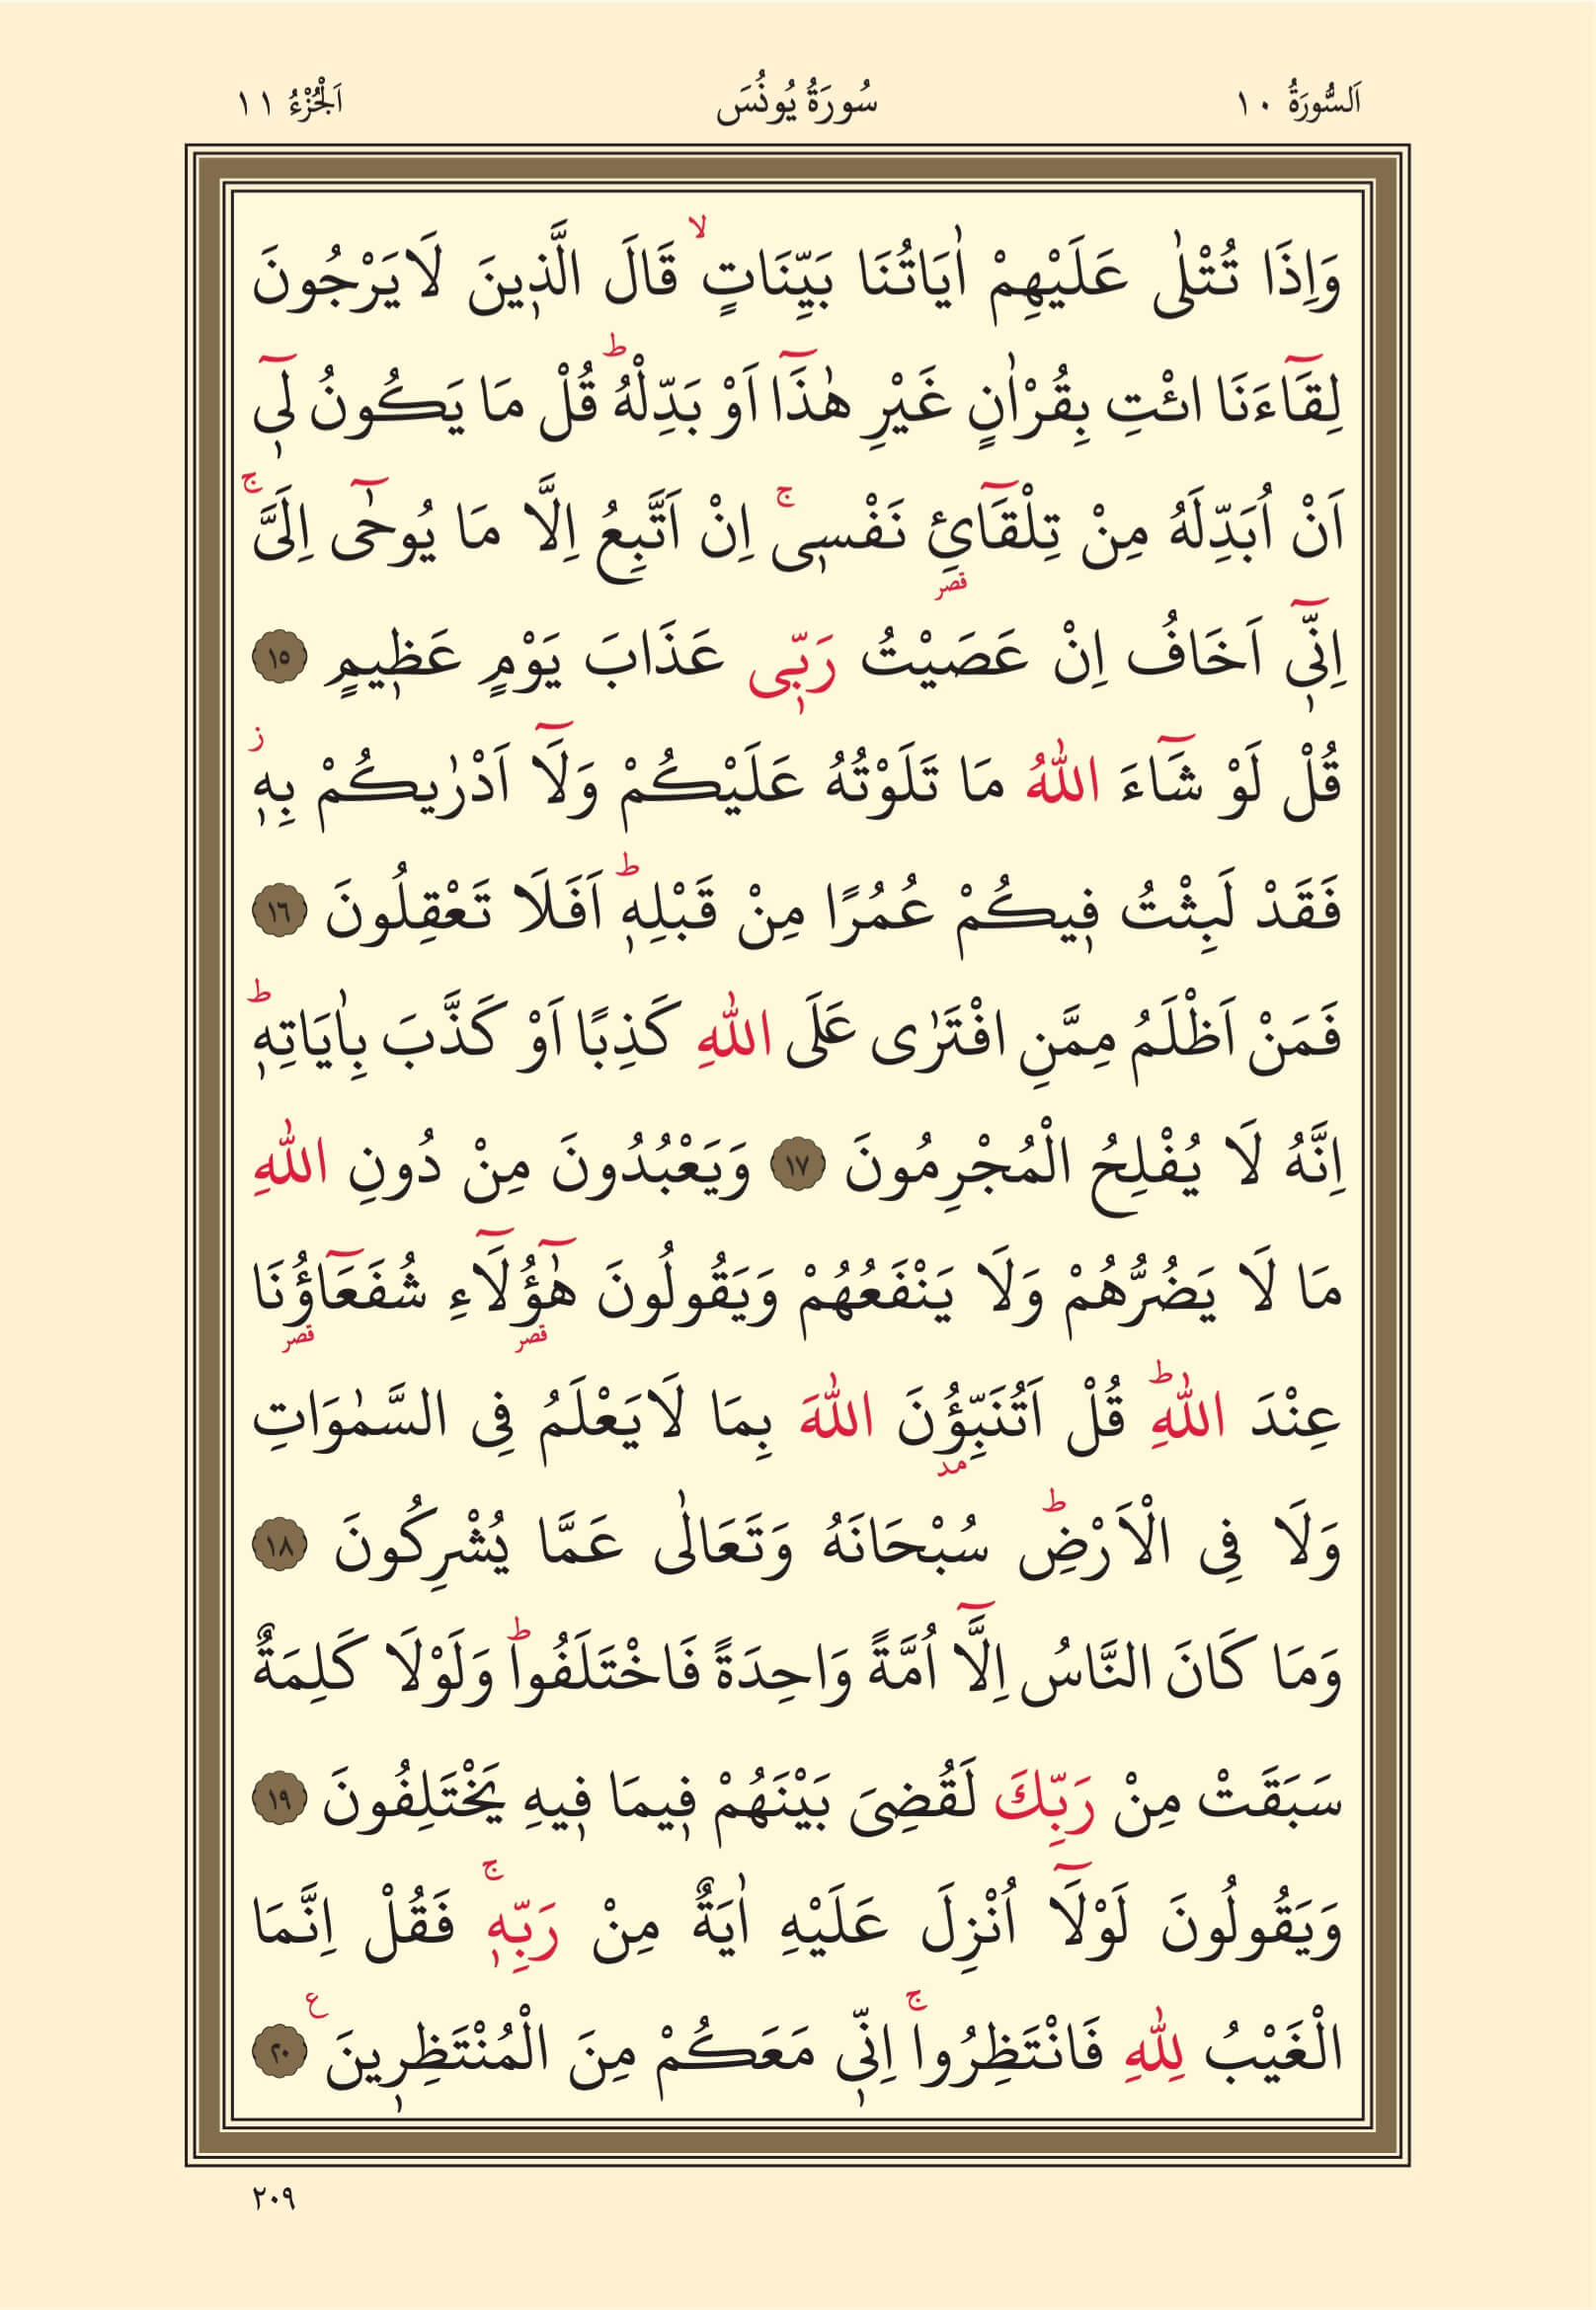 اَلسُّورَةُ ١٠ سُورَةُ يُونُسَ اَلْجُزْءُ ١١
وَاِذَا تُتْلٰى عَلَيْهِمْ اٰيَاتُنَا بَيِّنَاتٍۙ قَالَ الَّذ۪ينَ لَا يَرْجُونَ
لِقَٓاءَنَا ائْتِ بِقُرْاٰنٍ غَيْرِ هٰذَٓا اَوْ بَدِّلْهُۜ قُلْ مَا يَكُونُ ل۪ٓي
اَنْ اُبَدِّلَهُ مِنْ تِلْقَٓائِ۬ نَفْس۪يۚ اِنْ اَتَّبِعُ اِلَّا مَا يُوحٰٓى اِلَيَّۚ
قصر
اِنّ۪ٓي اَخَافُ اِنْ عَصَيْتُ رَبّ۪ي عَذَابَ يَوْمٍ عَظ۪يمٍ ١٥
قُلْ لَوْ شَٓاءَ اللّٰهُ مَا تَلَوْتُهُ عَلَيْكُمْ وَلَٓا اَدْرٰيكُمْ بِه۪ۘ ز
فَقَدْ لَبِثْتُ ف۪يكُمْ عُمُرًا مِنْ قَبْلِه۪ۜ اَفَلَا تَعْقِلُونَ ١٦
فَمَنْ اَظْلَمُ مِمَّنِ افْتَرٰى عَلَى اللّٰهِ كَذِبًا اَوْ كَذَّبَ بِاٰيَاتِه۪ۜ
اِنَّهُ لَا يُفْلِحُ الْمُجْرِمُونَ ١٧ وَيَعْبُدُونَ مِنْ دُونِ اللّٰهِ
مَا لَا يَضُرُّهُمْ وَلَا يَنْفَعُهُمْ وَيَقُولُونَ هٰٓؤُلَٓاءِ شُفَعَٓاؤُ۬نَا
قصر قصر
عِنْدَ اللّٰهِۜ قُلْ اَتُنَبِّؤُ۫نَ اللّٰهَ بِمَا لَا يَعْلَمُ فِي السَّمٰوَاتِ
مد
وَلَا فِي الْاَرْضِۜ سُبْحَانَهُ وَتَعَالٰى عَمَّا يُشْرِكُونَ ١٨
وَمَا كَانَ النَّاسُ اِلَّٓا اُمَّةً وَاحِدَةً فَاخْتَلَفُواۜ وَلَوْلَا كَلِمَةٌ
سَبَقَتْ مِنْ رَبِّكَ لَقُضِيَ بَيْنَهُمْ ف۪يمَا ف۪يهِ يَخْتَلِفُونَ ١٩
وَيَقُولُونَ لَوْلَٓا اُنْزِلَ عَلَيْهِ اٰيَةٌ مِنْ رَبِّه۪ۚ فَقُلْ اِنَّمَا
الْغَيْبُ لِلّٰهِ فَانْتَظِرُواۚ اِنّ۪ي مَعَكُمْ مِنَ الْمُنْتَظِر۪ينَ ع ٢٠
٢٠٩